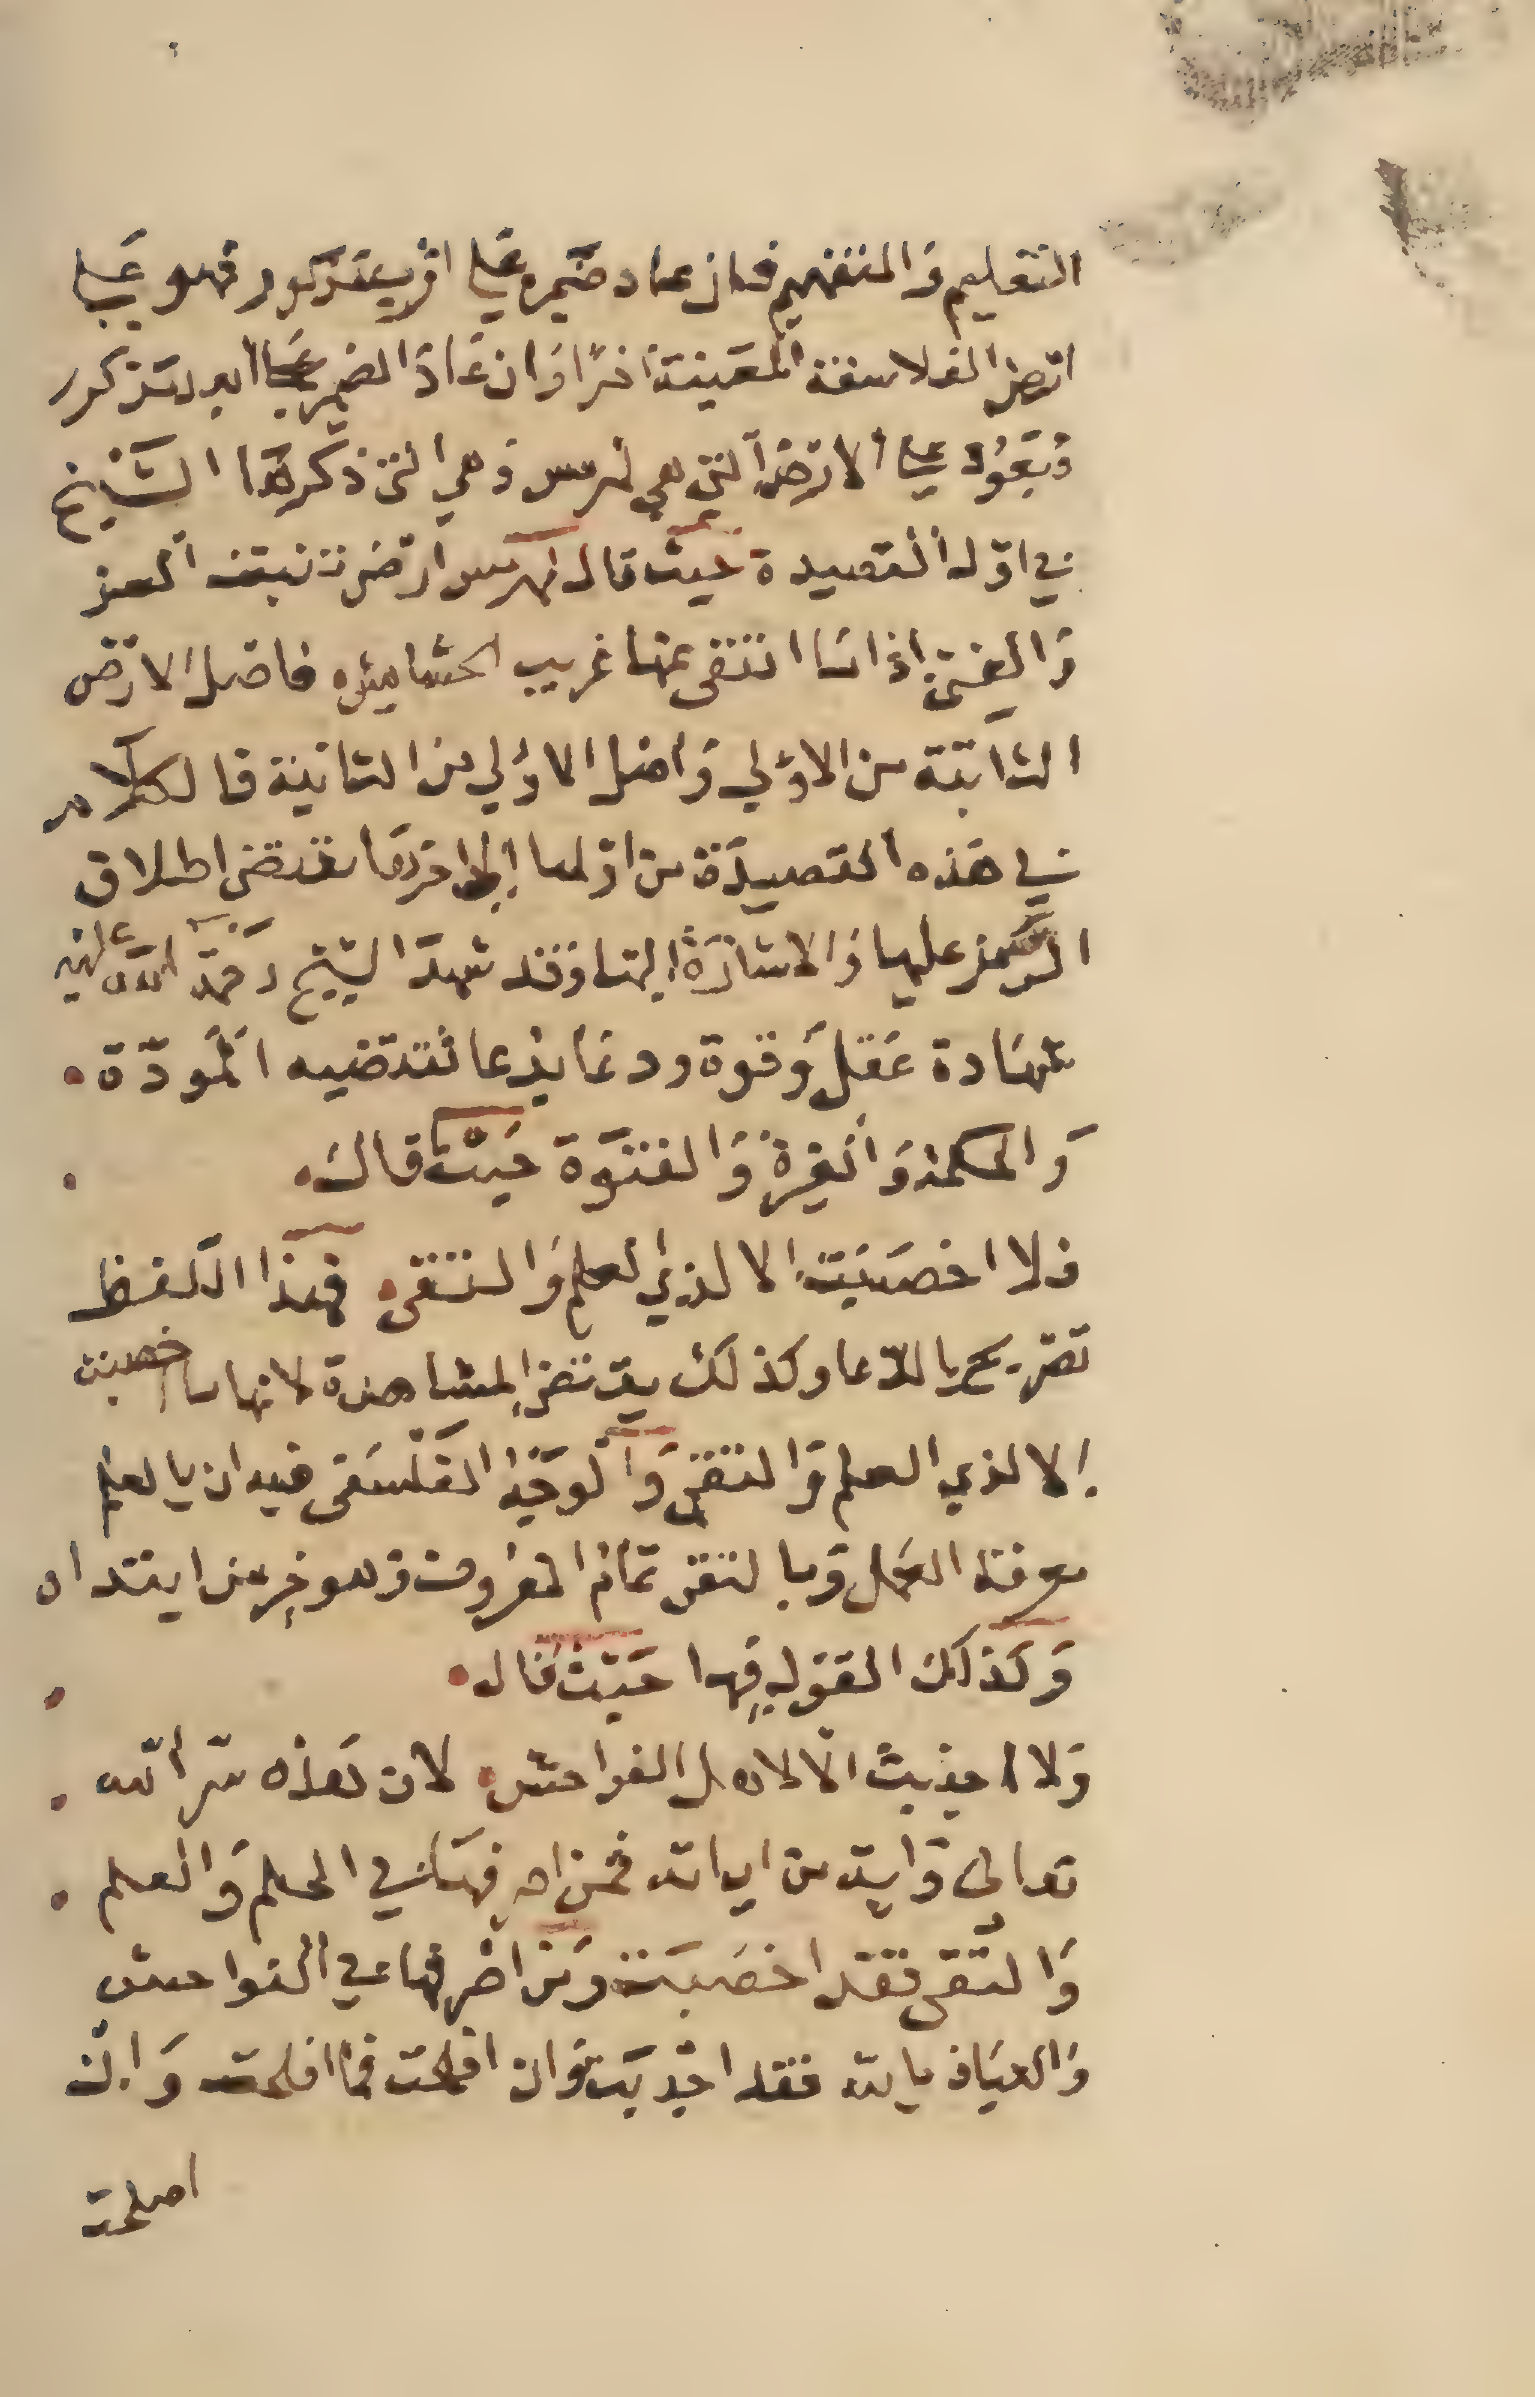 التعليم وَالتفهيم فان عاد ضميره علي اقرب مذكور فهو علي
ارض الفلاسفة المعَينة اخرًا وَان عَادَ الضمير علي ابعد مذكور
وَيعَوُد علي الارض التي هي لهرمس وَهي التي ذكرهَا الشيخ
في اوّل القصيدة حيث قال لهرمس ارض تنبت العز
وَالغني اذا ما انتفى عنها غريب الحشايش فاصل الارض
الثانية من الاوَلي وَاصل الاوُلي من الثانية فالكلام
في هَذه القصيدَة من اولها إلى اخرهَا يقتضي اطلاق
الرمز عليها وَالاشارَة اليها وَقد شهدَ الشيخ رحمَة الله عليه
شهَادة عَقل وَقوة ودعَا بدعا تقتضيه المَودّة
وَالحكمة وَالغيرة وَالفتوّة حيَث قال
فلا اخصَبَت الا لذي العلم وَالتقى فهذا اللفظ
تصريح بالدّعا وكذلك يقتضي المشاهدة لانها ما اخصبت
الا لذي العلم وَالتقى وَالوَجه الفَلسَفى فيه ان بالعلم
معرفة العَمل وَبالتقى تمام المعروف وَهو خير من ابتداه
وَكذلك القول فيها حَيث قال
وَلا اجدبت الا لاهل الفواحش لان هَذه سّر الله
تعالى وَاية من اياته فمن امر فيهَا في الحلم وَالعلم
وَالتّقى فقد اخصَبَت وَمَن اضرفها في الفواحش
وَالعيَاذ بالله فقد اجْدبَت وَان افلحَت فما افلحت وَان
اصلحت